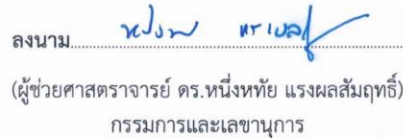 ลงนาม
(ผู้ช่วยศาสตราจารย์ ดร.หนึ่งหทัย แรงผลสัมฤทธิ์)
กรรมการและเลขานุการ